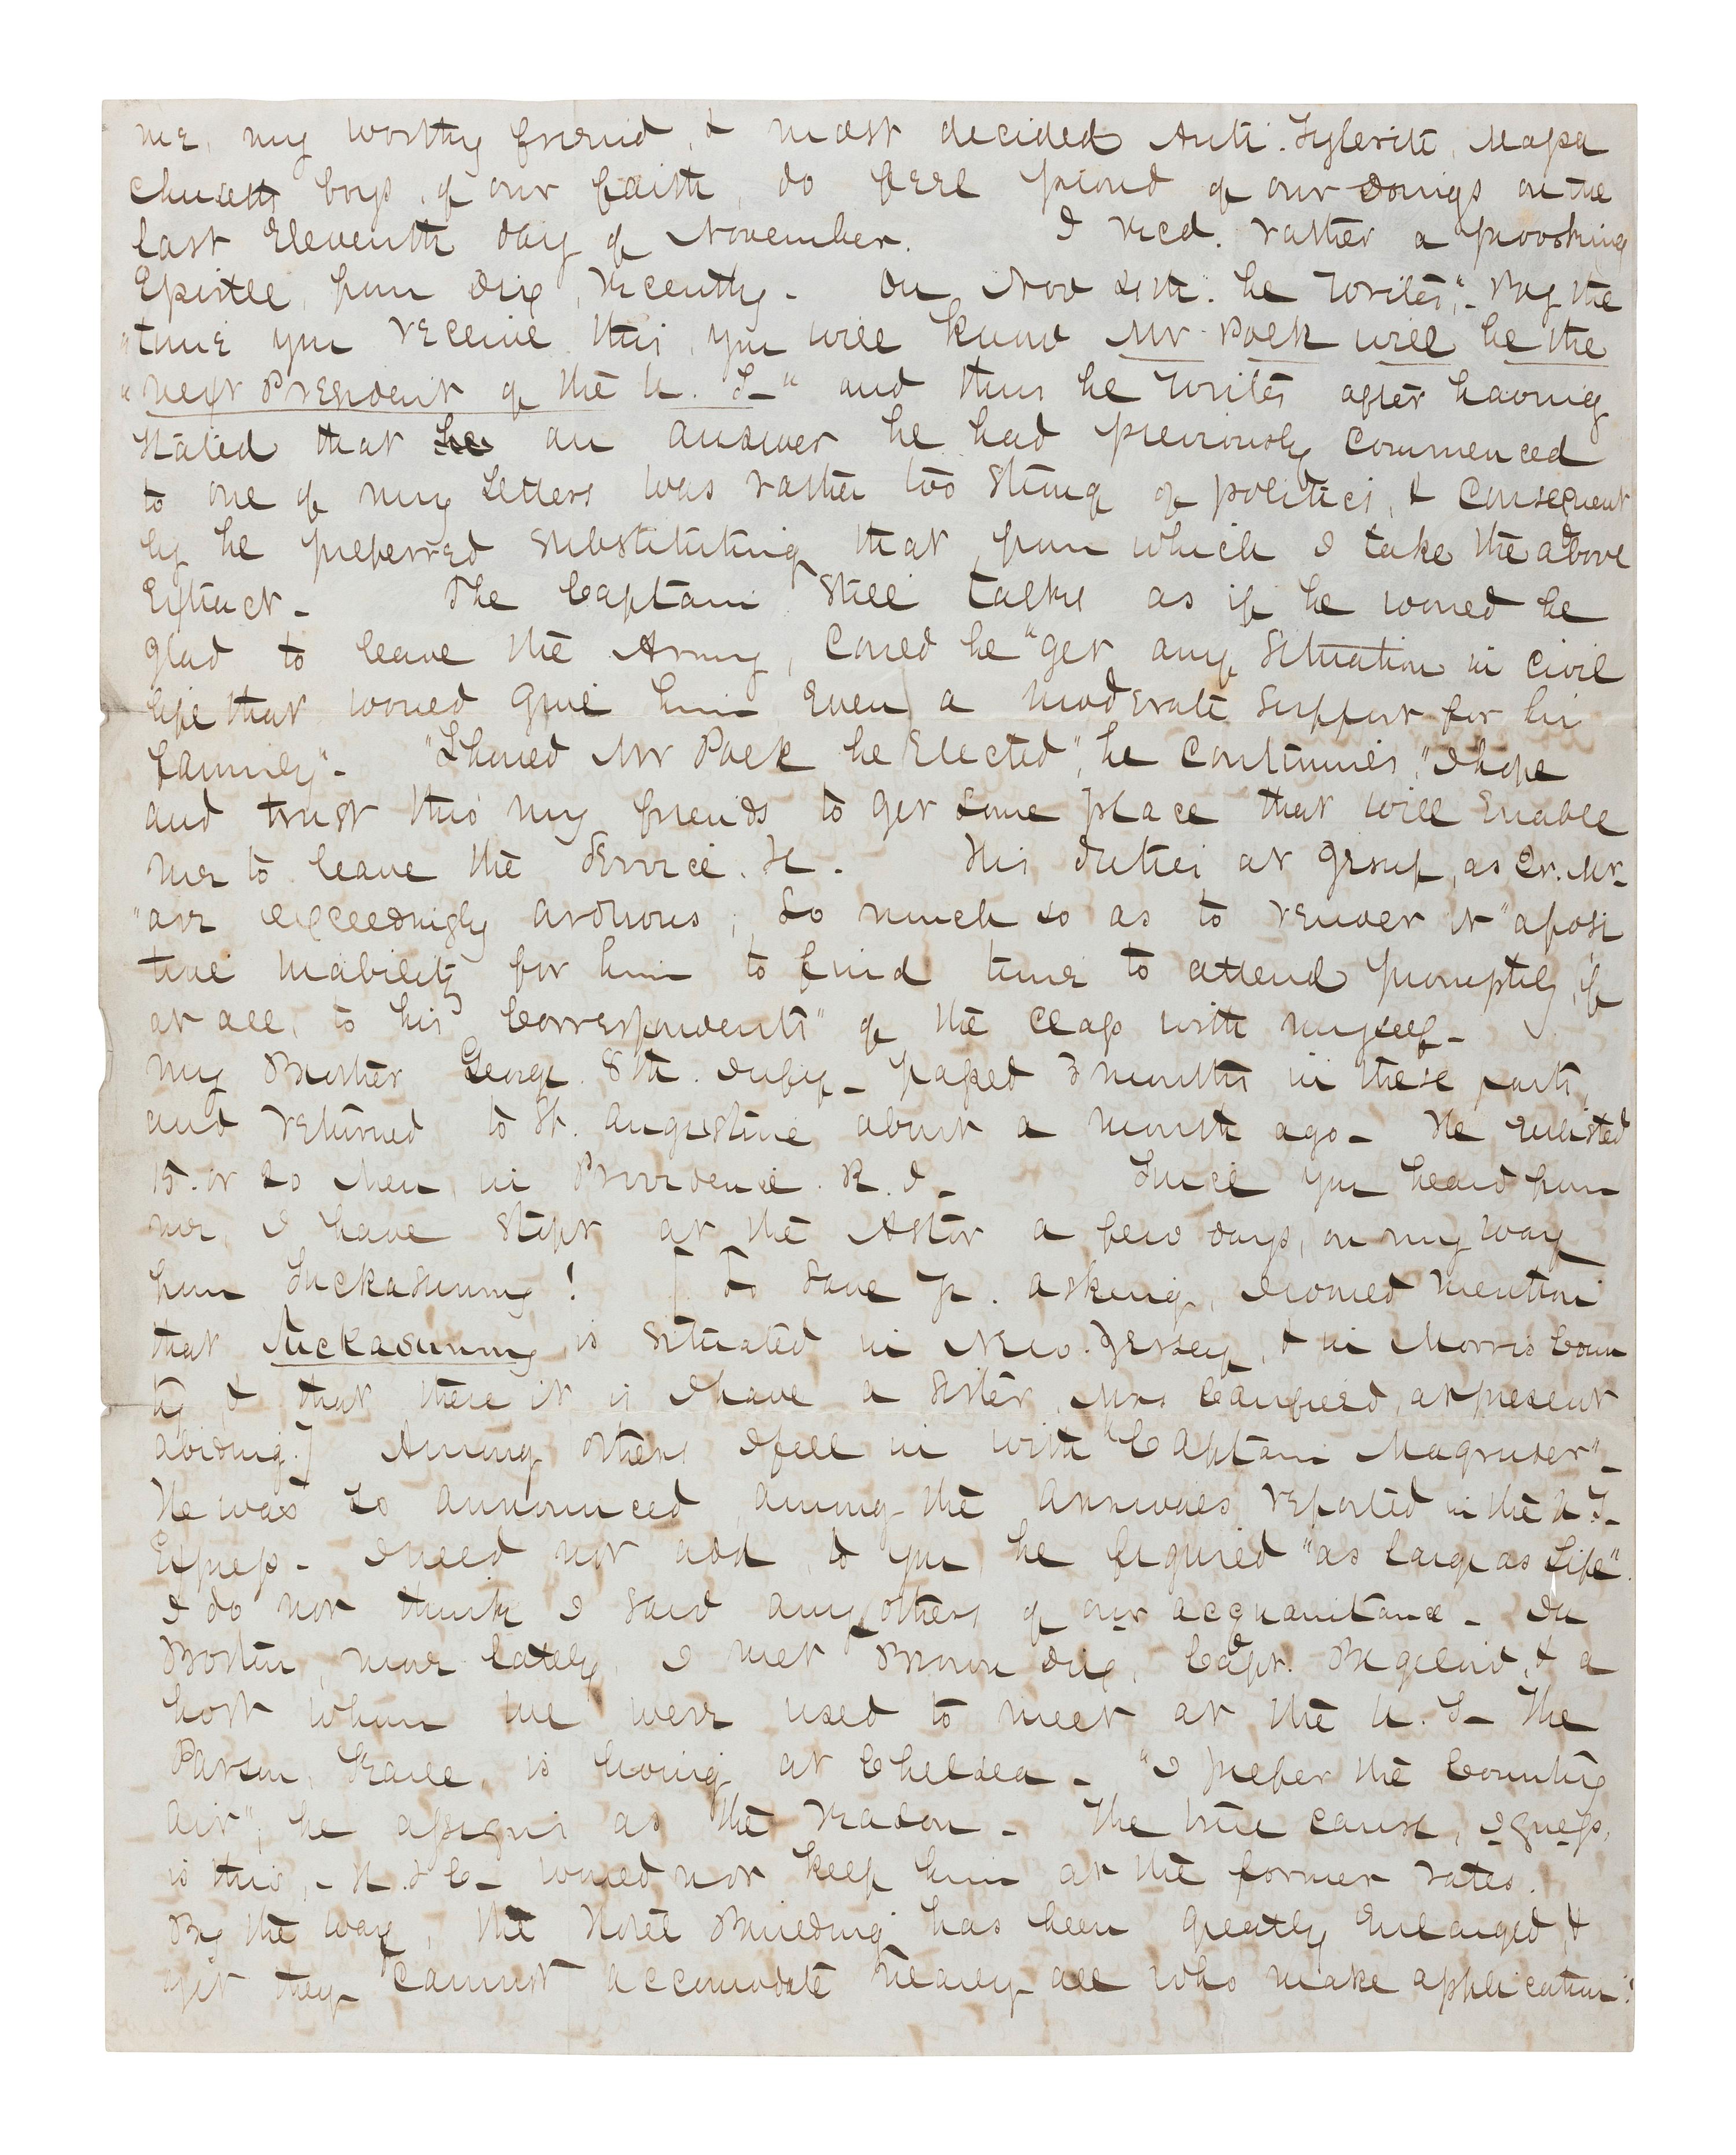 me, my worthy friend, & most decided Anti-Tylerite, Massa
chusetts boys, of our faith, do feel proud of our doings on the
last Eleventh day of November. I recd. rather a provoking
Epistle, from Dix, recently - On Nov he writes, "- By the
"time you receive this, you will know Mr Polk will be the
"next President of the U. S-" and thus he writes after having
stated that he an answer he had previously commenced
to one of my Letters was rather too strong of politics, & consequent
ly he preferred substituting that, from which I take the above
Extract - The Captain still talks as if he would be
glad to leave the Army, could he "get any situation in civil
life that would give him even a moderate support for his
family"- "Should Mr Polk be Elected", he continues, "I hope
and trust thro' my friends to get some place that will enable
me to leave the Service. &c. His duties at Jesup, as Qr. Mr-
"are exceedingly arduous, so much so as to render it "a posi
tive inability for him to find time to attend promptly, if
at all, to his Correspondents" of the class with myself-
My Brother George. 8th. Infy- passed 3 months in these parts,
and returned to St. Augustine about a month ago- He enlisted
15. or 20 Men, in Providence. R. I- Since you heard from
me, I have stopt at the Astor a few days, on my way
from Suckasunny! [To save yr. asking, I would mention
that Suckasunny is situated in New-Jersey, & in Morris Coun
ty, & that there it is I have a sister, Mrs Canfield, at present
abiding.] Among others I fell in with "Captain Magruder"-
He was so announced among the arrivals reported in the N.Y-
Express- I need not add, to you, he figured "as large as Life".
I do not think I said any others of our acquaintance- In
Boston, more lately, I met Brown Dix, Capt. Bigelow, & a
host whom we were used to meet at the U. S- The
Parson, is living at Chelsea- "I prefer the Country
Air", he assigns as the reason- The true cause, I guess,
is this, - H. & C- would not keep him at the former rates.
By the way, the Hotel Building has been greatly enlarged, &
yet they cannot accomodate nearly all who make application!